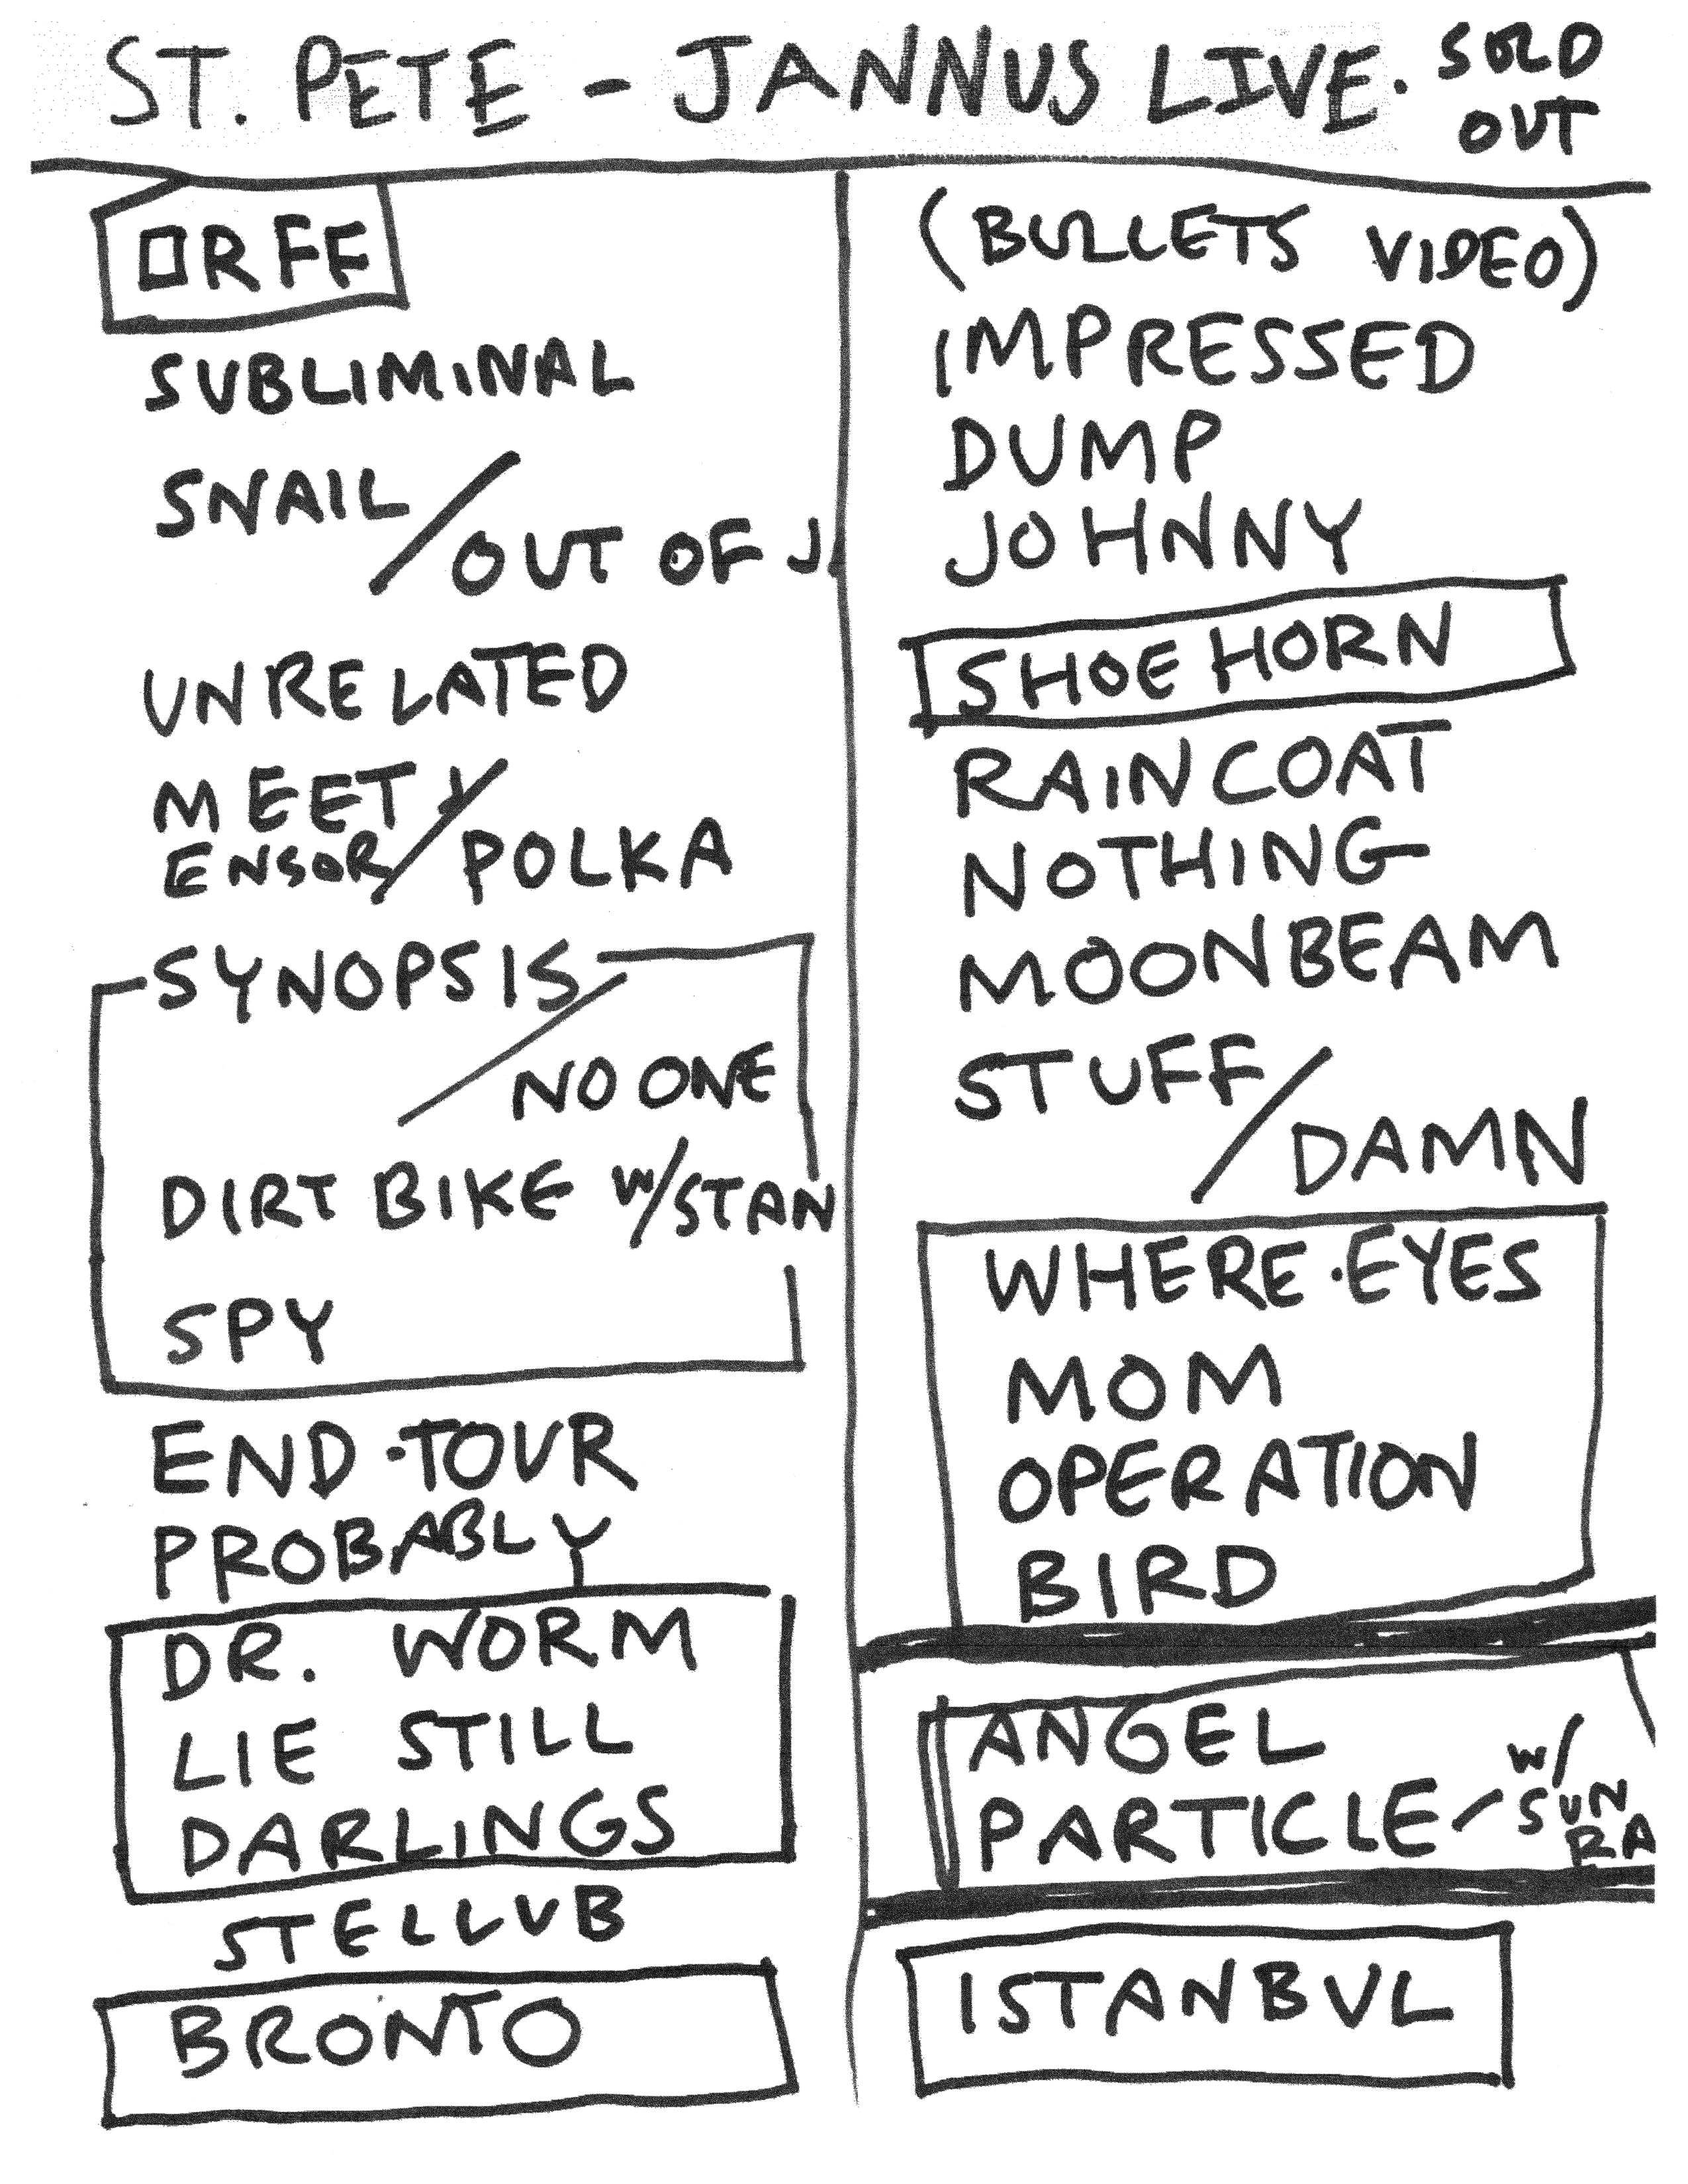 ST. PETE - JANNUS LIVE. SOLD OUT
ORFF
SUBLIMINAL
SNAIL / OUT OF J
UNRELATED
MEET J
ENSOR / POLKA
SYNOPSIS
/ NO ONE
DIRT BIKE W/STAN
SPY
END · TOUR
PROBABLY
DR. WORM
LIE STILL
DARLINGS
STELLUB
BRONTO
(BULLETS VIDEO)
IMPRESSED
DUMP
JOHNNY
SHOEHORN
RAINCOAT
NOTHING
MOONBEAM
STUFF
/ DAMN
WHERE · EYES
MOM
OPERATION
BIRD
ANGEL
PARTICLE - W/ SUN RA
ISTANBUL